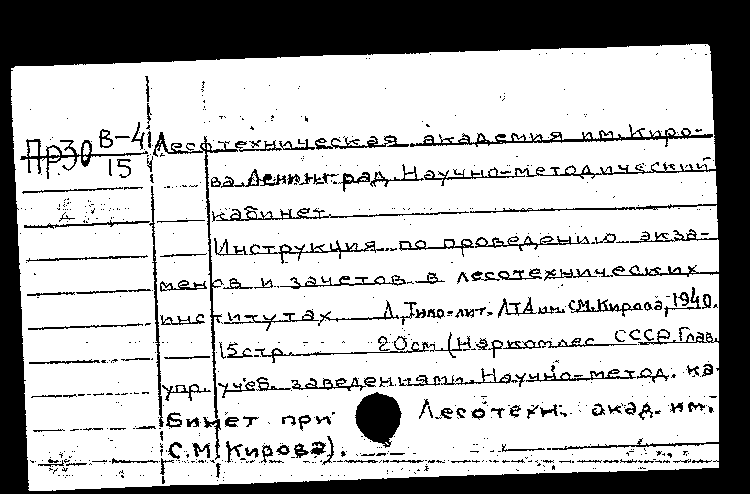 Пр30 В-4/15
Лесотехническая академия им. Киро-
ва. Ленинград. Научно-методический
кабинет.
Инструкция по проведению экза-
менов и зачетов в лесотехнических
институтах. Л., Типо-лит. ЛТА им. С.М. Кирова, 1940.
15 стр. 20 см. (Наркомлес СССР. Глав.
упр. учеб. заведениями. Научно-метод. ка-
бинет при Лесотехн. акад. им.
С.М. Кирова).